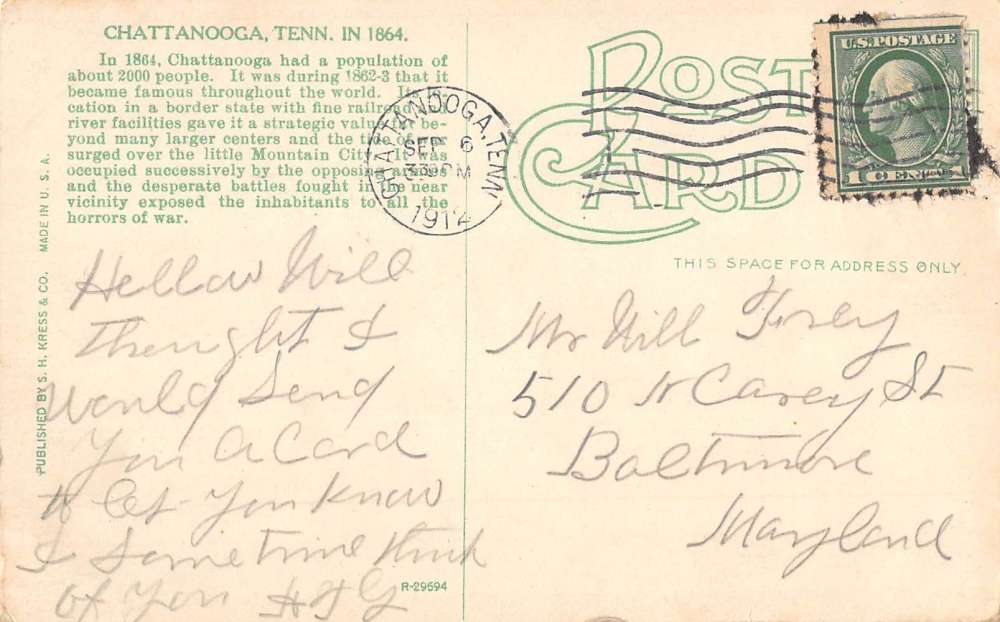 CHATTANOOGA, TENN. IN 1864.
In 1864, Chattanooga had a population of
about 2000 people. It was during 1862-3 that it
became famous throughout the world. Its lo-
cation in a border state with fine railroad and
river facilities gave it a strategic value far be-
yond many larger centers and the tide of war
surged over the little Mountain City. It was
occupied successively by the opposing armies
and the desperate battles fought in the near
vicinity exposed the inhabitants to all the
horrors of war.
PUBLISHED BY S. H. KRESS & CO. MADE IN U. S. A.
Hellow Will
thought I
would Send
You a Card
to let you Know
I Sometime think
of You H F G
R-29694
CHATTANOOGA, TENN.
SEP 6
330 PM
1912
POST
CARD
U.S. POSTAGE
1 CENT 1
THIS SPACE FOR ADDRESS ONLY
Mr Will
510 N Carey St
Baltimore
Maryland